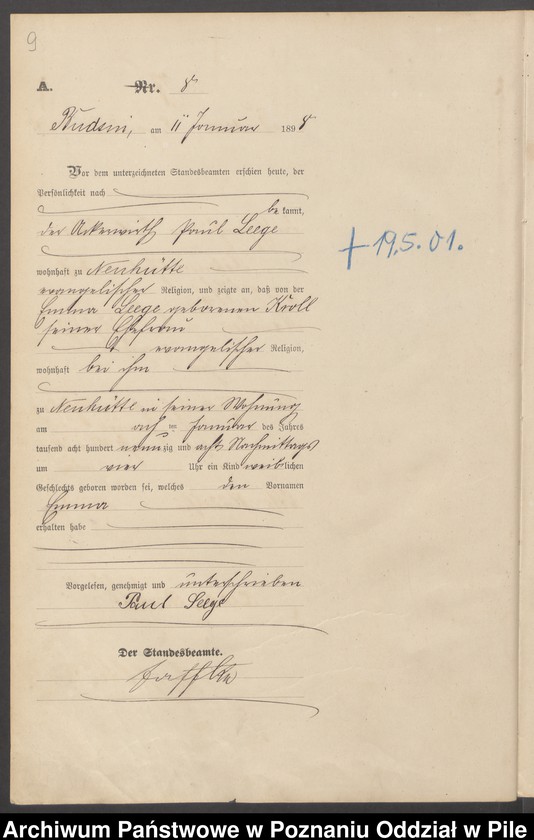 9
A. Nr. 8
Budsin, am 11 Januar 1898
Vor dem unterzeichneten Standesbeamten erschien heute, der
Persönlichkeit nach
be kannt,
der Ackerwirth Paul Leege
wohnhaft zu Neuhütte
evangelischer Religion, und zeigte an, daß von der
Emma Leege geborenen Kroll
seiner Ehefrau
evangelischer Religion,
wohnhaft bei ihm
zu Neuhütte in seiner Wohnung
am acht ten Januar des Jahres
tausend acht hundert neunzig und acht Nachmittags
um vier Uhr ein Kind weiblichen
Geschlechts geboren worden sei, welches den Vornamen
Emma
erhalten habe
Vorgelesen, genehmigt und unterschrieben
Paul Leege
Der Standesbeamte.
+ 19.5.01.
Archiwum Państwowe w Poznaniu Oddział w Pile